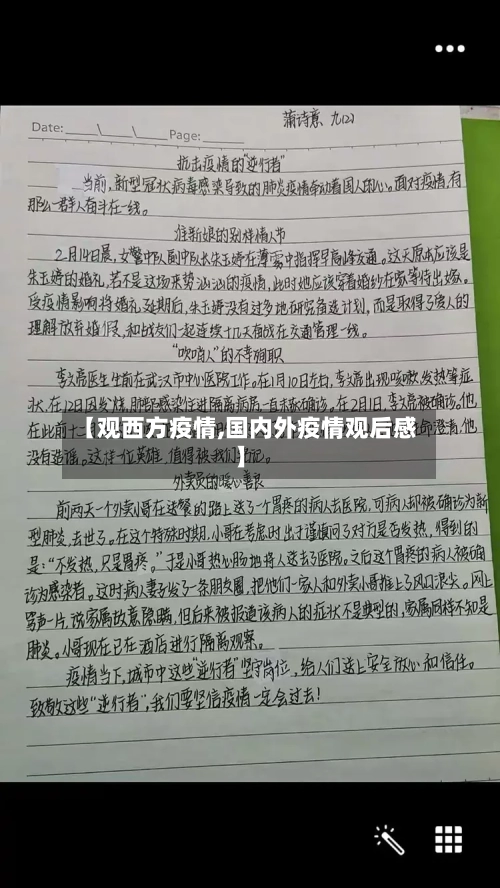 蒲诗意 九(2)
Date: Page:
抗击疫情的"逆行者"
当前,新型冠状病毒感染导致的肺炎疫情牵动着国人的心。面对疫情,有
那么一群人奋斗在一线。
准新娘的别样情人节
2月14日晨,女警中队副中队长朱玉婷在薄雾中指挥早高峰交通。这天原本应该是
朱玉婷的婚礼,若不是这场来势汹汹的疫情,此时她应该穿着婚纱在家等待出嫁。
受疫情影响将婚礼延期后,朱玉婷没有过多地研究备选计划,而是取得了爱人的
理解放弃婚假,和战友们一起连续十几天奋战在交通管理一线。
"吹哨人"的不幸殉职
李文亮医生生前在武汉市中心医院工作。在1月10日左右,李文亮出现咳嗽、发热等症
状,在12日因发烧、肺部感染住进隔离病房,一直未被确诊。在2月1日,李文亮确诊。他
在此前十二 澄清,他
【观西方疫情,国内外疫情观后感
】
没有造谣。这样一位英雄,值得被我们
外卖员的暖心善良
前两天一个外卖小哥在送餐的路上送了一个胃疼的病人去医院,可病人却被确诊为新
型肺炎,去世了。在这个特殊时期,小哥在考虑时出于谨慎问了对方是否发热,得到的
是:"不发热,只是胃疼。"于是小哥热心肠地将人送去了医院。之后这个胃疼的病人被确
诊为感染者。这时病人妻子发了一条朋友圈,把他们一家人和外卖小哥推上了风口浪尖。网上
骂声一片,说家属故意隐瞒,但后来被报道该病人的症状不是典型的,家属同样不知是
肺炎。小哥现在已在酒店进行隔离观察。
疫情当下,城市中这些"逆行者"坚守岗位,给人们送上安全放心和信任。
致敬这些"逆行者",我们要坚信疫情一定会过去!